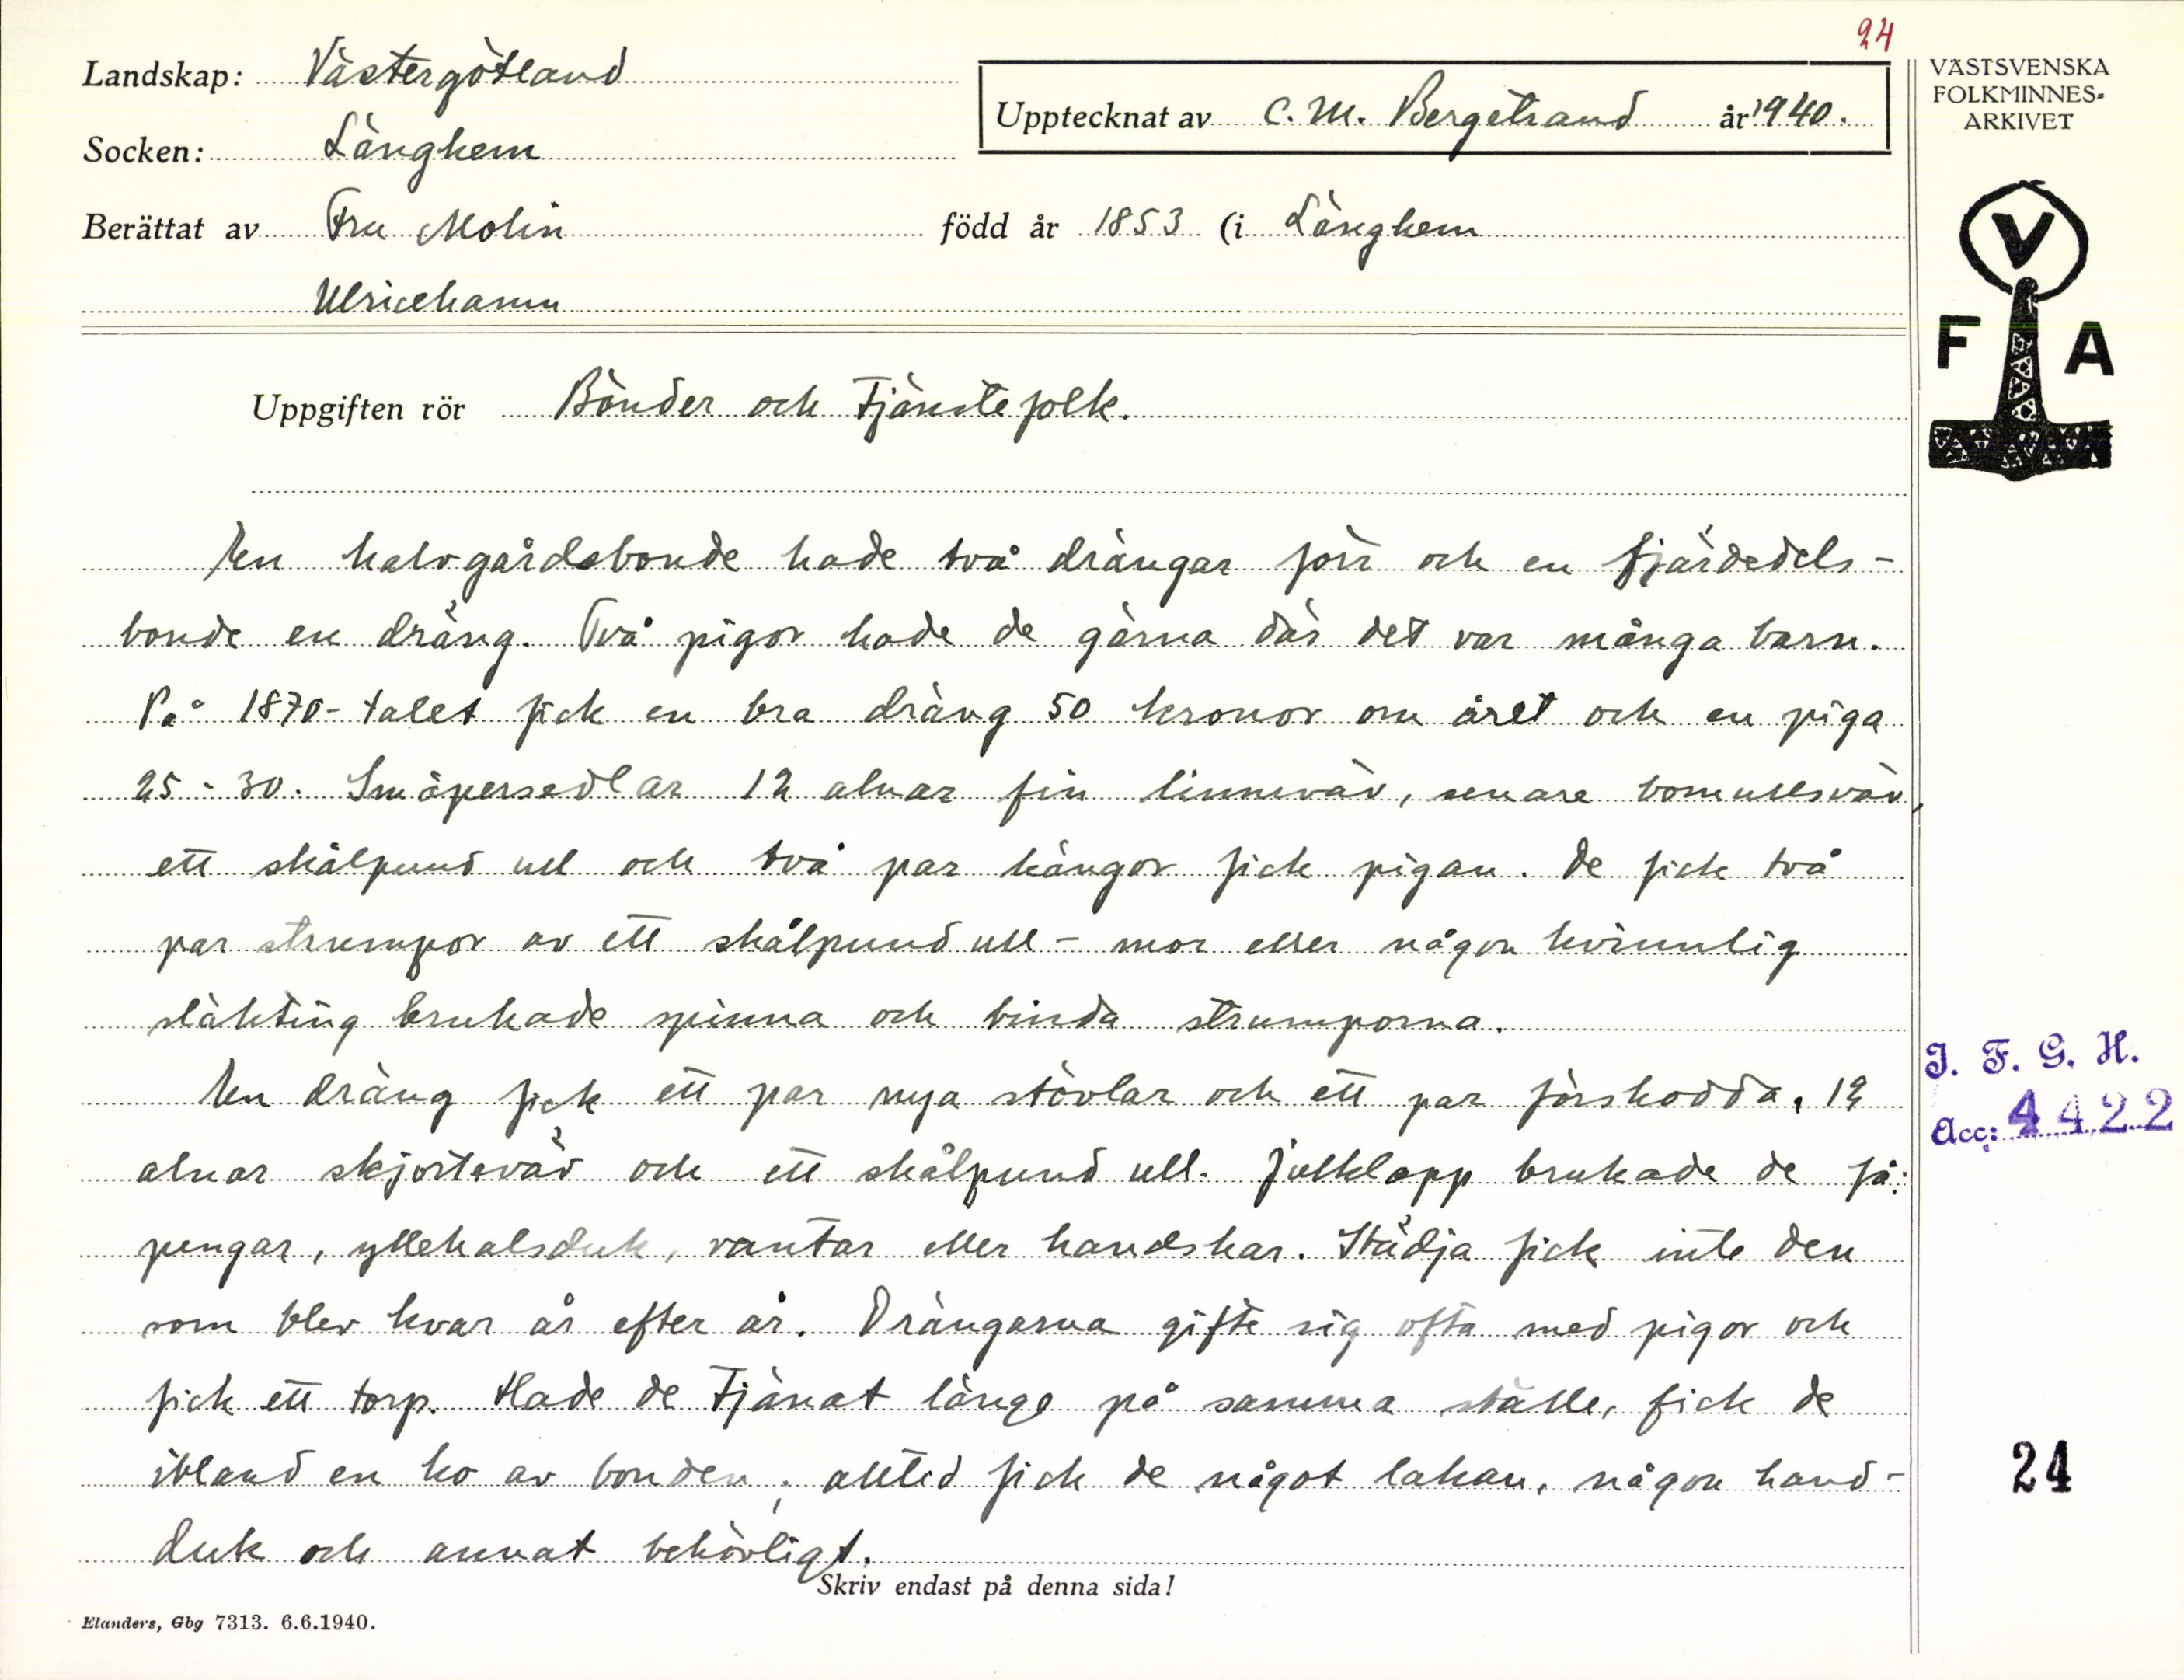 24
Landskap: Västergötland
Upptecknat av C. M. Bergstrand år 1940.
VÄSTSVENSKA
FOLKMINNES-
ARKIVET
Socken: Länghem
Berättat av Fru Molin född år 1853 (i Länghem
Ulricehamn
V
F A
Uppgiften rör Bönder och tjänstefolk.
En halvgårdsbonde hade två drängar förr och en fjärdedels-
bonde en dräng. Två pigor hade de gärna där det var många barn.
På 1870-talet fick en bra dräng 50 kronor om året och en piga
25-30. Småpersedlar 12 alnar fin linneväv, senare bomullsväv,
ett skålpund ull och två par kängor fick pigan. De fick två
par strumpor av ett skålpund ull - mor eller någon kvinnlig
släkting brukade spinna och binda strumporna.
En dräng fick ett par nya stövlar och ett par förskodda, 12
alnar skjorteväv och ett skålpund ull. Julklapp brukade de få:
pengar, yllehalsduk, vantar eller handskar. Städja fick inte den
som blev kvar år efter år. Drängarna gifte sig ofta med pigor och
fick ett torp. Hade de tjänat länge på samma ställe, fick de
ibland en ko av bonden; alltid fick de något lakan, någon hand-
duk och annat behövligt.
I. F. G. H.
Acc: 4422
24
Skriv endast på denna sida!
Elanders, Gbg 7313. 6.6.1940.